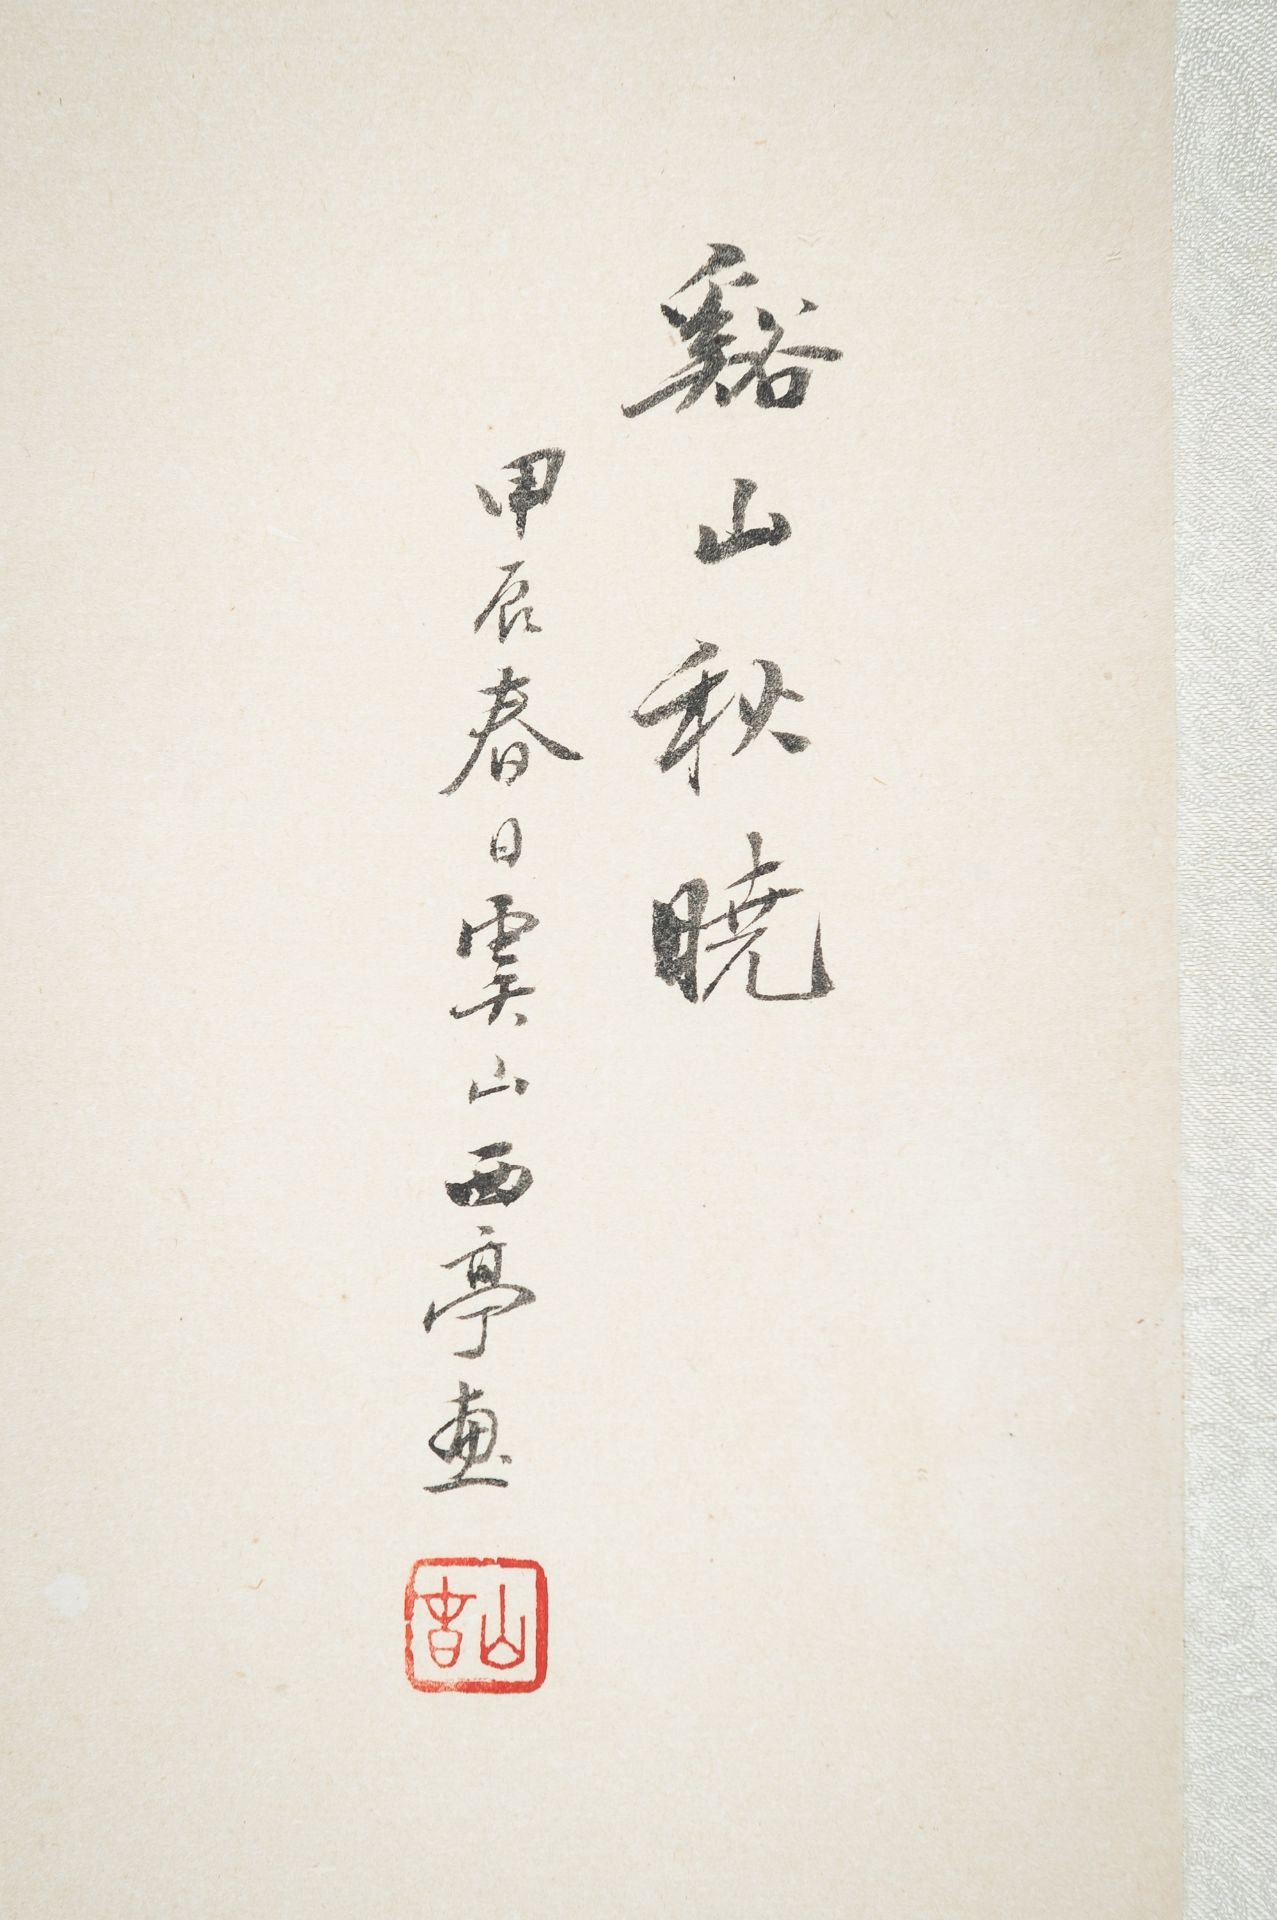 谿山秋暁
甲辰春日雲山西亭画
山吉